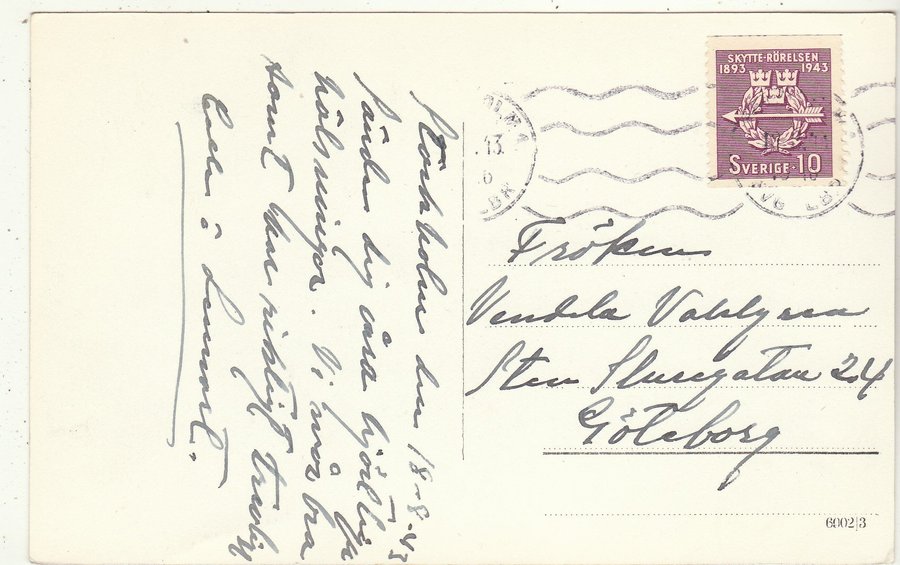 Stockholm den 18-8-43
Sänder dig våra hjärtliga
hälsningar. Vi mår bra
samt har riktigt trevligt
å Lennart.
SKYTTE-RÖRELSEN
1893 1943
SVERIGE 10
13
Fröken
Vendela Vahlgren
Sten Sturegatan 24
Göteborg
6002|3